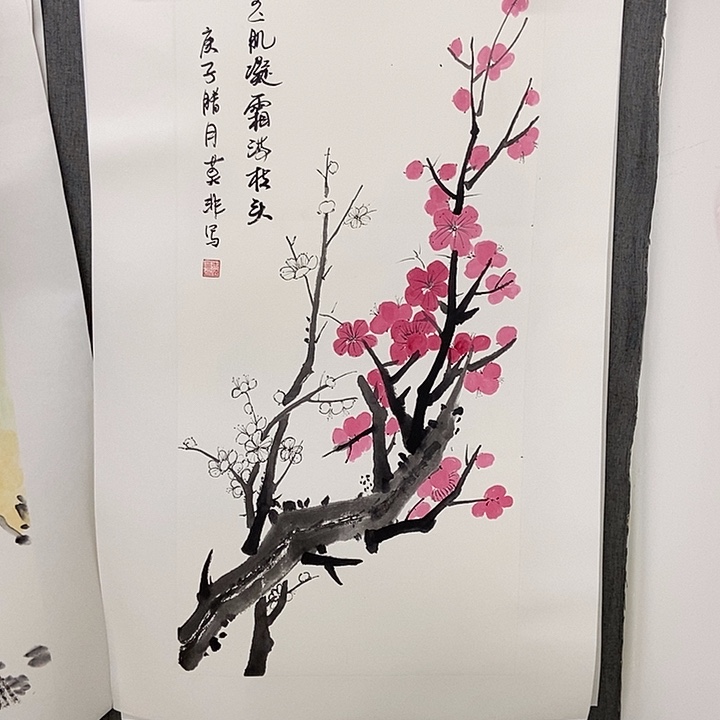 玉肌凝霜满枝头
庚子腊月莫非写